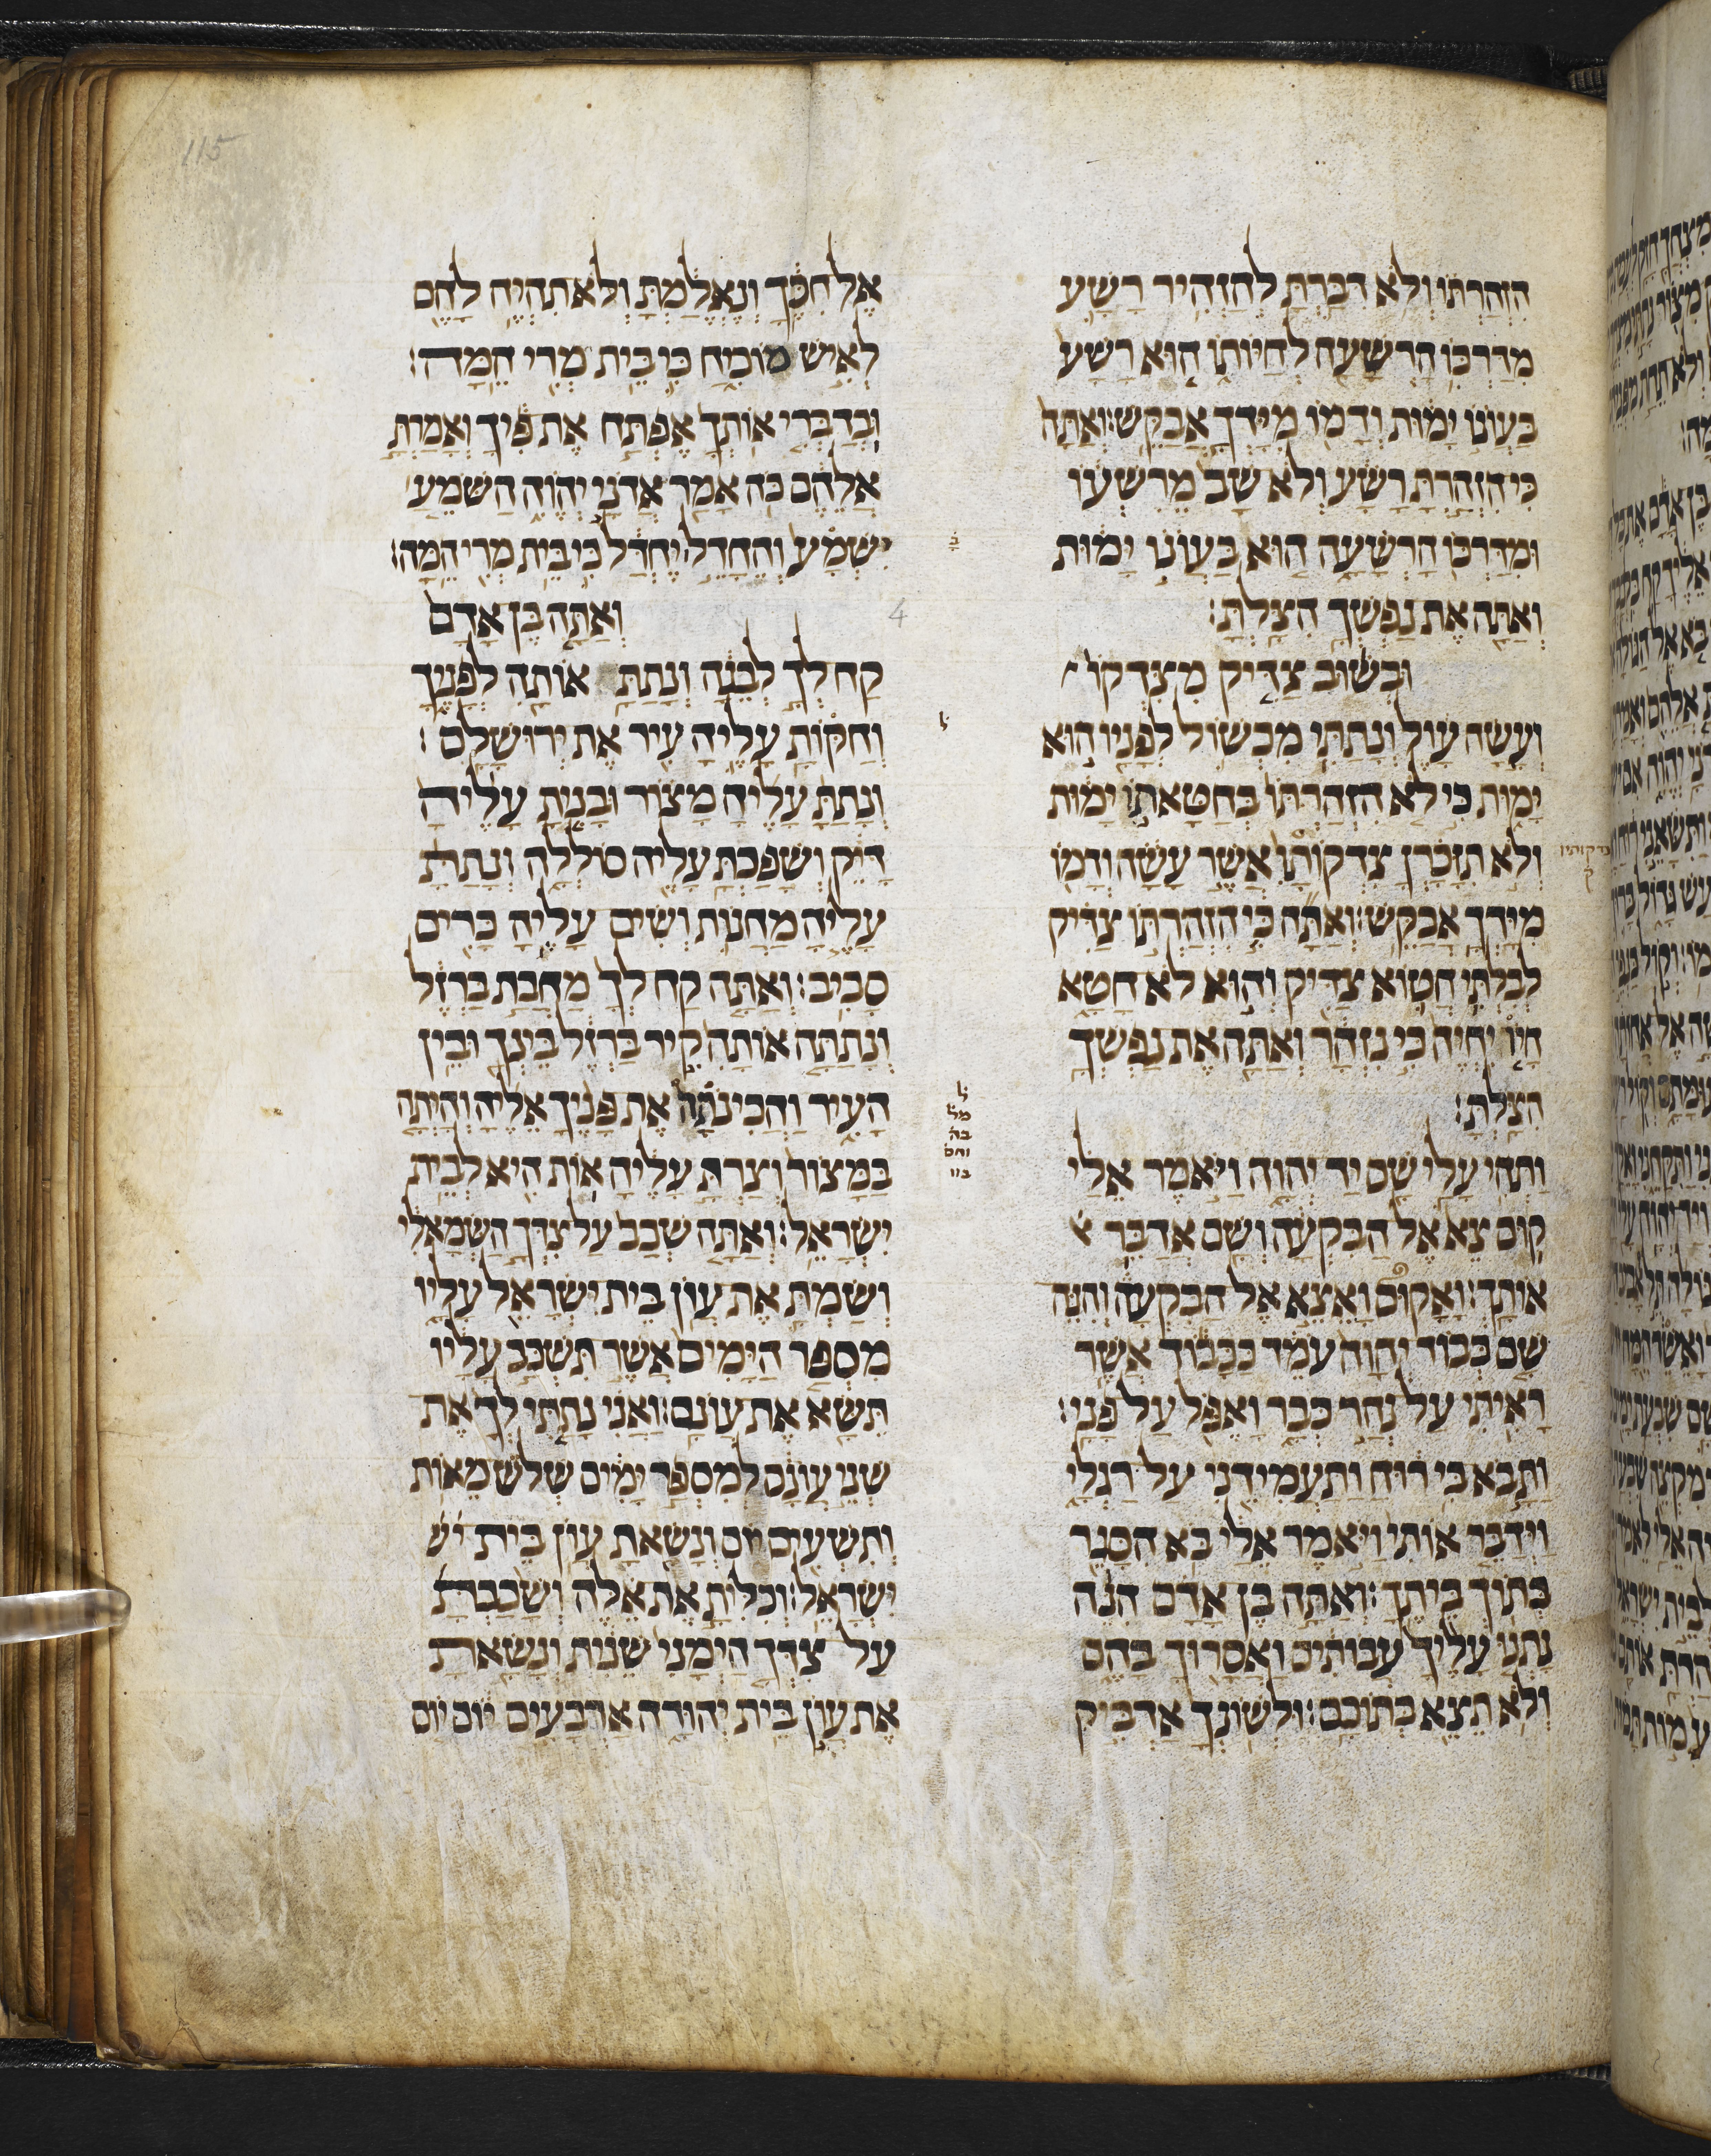 הִזְהַרְתּוֹ וְלֹא דִבַּרְתָּ לְהַזְהִיר רָשָׁע
מִדַּרְכּוֹ הָרְשָׁעָה לְחַיּוֹתוֹ הוּא רָשָׁע
בַּעֲוֹנוֹ יָמוּת וְדָמוֹ מִיָּדְךָ אֲבַקֵּשׁ׃ וְאַתָּה
כִּי הִזְהַרְתָּ רָשָׁע וְלֹא שָׁב מֵרִשְׁעוֹ
וּמִדַּרְכּוֹ הָרְשָׁעָה הוּא בַּעֲוֹנוֹ יָמוּת
וְאַתָּה אֶת נַפְשְׁךָ הִצַּלְתָּ׃
וּבְשׁוּב צַדִּיק מִצִּדְקוֹ
וְעָשָׂה עָוֶל וְנָתַתִּי מִכְשׁוֹל לְפָנָיו הוּא
יָמוּת כִּי לֹא הִזְהַרְתּוֹ בְּחַטָּאתוֹ יָמוּת
וְלֹא תִזָּכַרְןָ צִדְקוֹתָו אֲשֶׁר עָשָׂה וְדָמוֹ
מִיָּדְךָ אֲבַקֵּשׁ׃ וְאַתָּה כִּי הִזְהַרְתּוֹ צַדִּיק
לְבִלְתִּי חֲטוֹא צַדִּיק וְהוּא לֹא חָטָא
חָיוֹ יִחְיֶה כִּי נִזְהָר וְאַתָּה אֶת נַפְשְׁךָ
הִצַּלְתָּ׃
וַתְּהִי עָלַי שָׁם יַד יְהוָה וַיֹּאמֶר אֵלַי
קוּם צֵא אֶל הַבִּקְעָה וְשָׁם אֲדַבֵּר
אוֹתָךְ׃ וָאָקוּם וָאֵצֵא אֶל הַבִּקְעָה וְהִנֵּה
שָׁם כְּבוֹד יְהוָה עֹמֵד כַּכָּבוֹד אֲשֶׁר
רָאִיתִי עַל נְהַר כְּבָר וָאֶפֹּל עַל פָּנָי׃
וַתָּבֹא בִי רוּחַ וַתַּעֲמִידֵנִי עַל רַגְלָי
וַיְדַבֵּר אוֹתִי וַיֹּאמֶר אֵלַי בֹּא הִסָּגֵר
בְּתוֹךְ בֵּיתֶךָ׃ וְאַתָּה בֶן אָדָם הִנֵּה
נָתְנוּ עָלֶיךָ עֲבוֹתִים וַאֲסָרוּךָ בָּהֶם
וְלֹא תֵצֵא בְּתוֹכָם׃ וּלְשׁוֹנְךָ אַדְבִּיק
אֶל חִכֶּךָ וְנֶאֱלַמְתָּ וְלֹא תִהְיֶה לָהֶם
לְאִישׁ מוֹכִיחַ כִּי בֵּית מְרִי הֵמָּה׃
וּבְדַבְּרִי אוֹתְךָ אֶפְתַּח אֶת פִּיךָ וְאָמַרְתָּ
אֲלֵהֶם כֹּה אָמַר אֲדֹנָי יְהוִה הַשֹּׁמֵעַ
יִשְׁמָע וְהֶחָדֵל יֶחְדָּל כִּי בֵּית מְרִי הֵמָּה׃
וְאַתָּה בֶן אָדָם
קַח לְךָ לְבֵנָה וְנָתַתָּ אוֹתָהּ לְפָנֶיךָ
וְחַקּוֹתָ עָלֶיהָ עִיר אֶת יְרוּשָׁלִָם׃
וְנָתַתָּ עָלֶיהָ מָצוֹר וּבָנִיתָ עָלֶיהָ
דָּיֵק וְשָׁפַכְתָּ עָלֶיהָ סוֹלֲלָה וְנָתַתָּ
עָלֶיהָ מַחֲנוֹת וְשִׂים עָלֶיהָ כָּרִים
סָבִיב׃ וְאַתָּה קַח לְךָ מַחֲבַת בַּרְזֶל
וְנָתַתָּה אוֹתָהּ קִיר בַּרְזֶל בֵּינְךָ וּבֵין
הָעִיר וַהֲכִינֹתָה אֶת פָּנֶיךָ אֵלֶיהָ וְהָיְתָה
בַמָּצוֹר וְצַרְתָּ עָלֶיהָ אוֹת הִיא לְבֵית
יִשְׂרָאֵל׃ וְאַתָּה שְׁכַב עַל צִדְּךָ הַשְּׂמָאלִי
וְשַׂמְתָּ אֶת עֲוֹן בֵּית יִשְׂרָאֵל עָלָיו
מִסְפַּר הַיָּמִים אֲשֶׁר תִּשְׁכַּב עָלָיו
תִּשָּׂא אֶת עֲוֹנָם׃ וַאֲנִי נָתַתִּי לְךָ אֶת
שְׁנֵי עֲוֹנָם לְמִסְפַּר יָמִים שְׁלֹשׁ מֵאוֹת
וְתִשְׁעִים יוֹם וְנָשָׂאתָ עֲוֹן בֵּית יש
יִשְׂרָאֵל׃ וְכִלִּיתָ אֶת אֵלֶּה וְשָׁכַבְתָּ
עַל צִדְּךָ הַיְמָנִי שֵׁנִית וְנָשָׂאתָ
אֶת עֲוֹן בֵּית יְהוּדָה אַרְבָּעִים יוֹם יוֹם
צדקותיו
ק
4
115